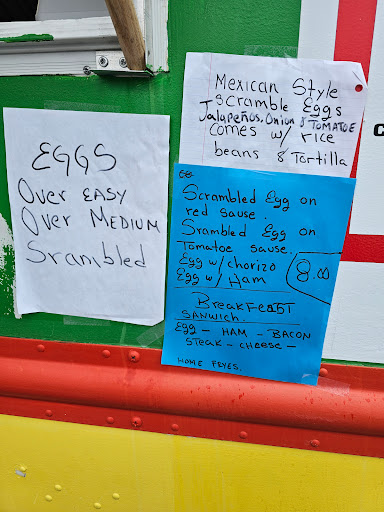 EGGS
Over EASY
Over MEDIUM
Srambled
Mexican Style
scramble Eggs
Jalapeños, Onion & TOMATOE
comes w/ rice
beans & Tortilla
Scrambled Egg on
red sause.
Srambled Egg on
Tomatoe sause.
Egg w/ chorizo
Egg w/ Ham
8.00
BreakFeast
SANWICH
Egg - HAM - BACON
STEAK - CHEESE -
HOME FRYES.
C